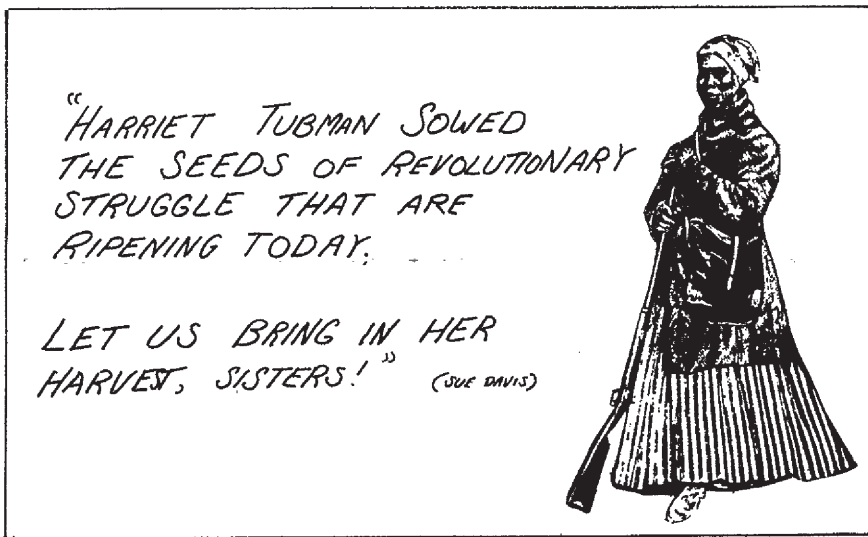 "HARRIET TUBMAN SOWED
THE SEEDS OF REVOLUTIONARY
STRUGGLE THAT ARE
RIPENING TODAY.
LET US BRING IN HER
HARVEST, SISTERS!" (SUE DAVIS)